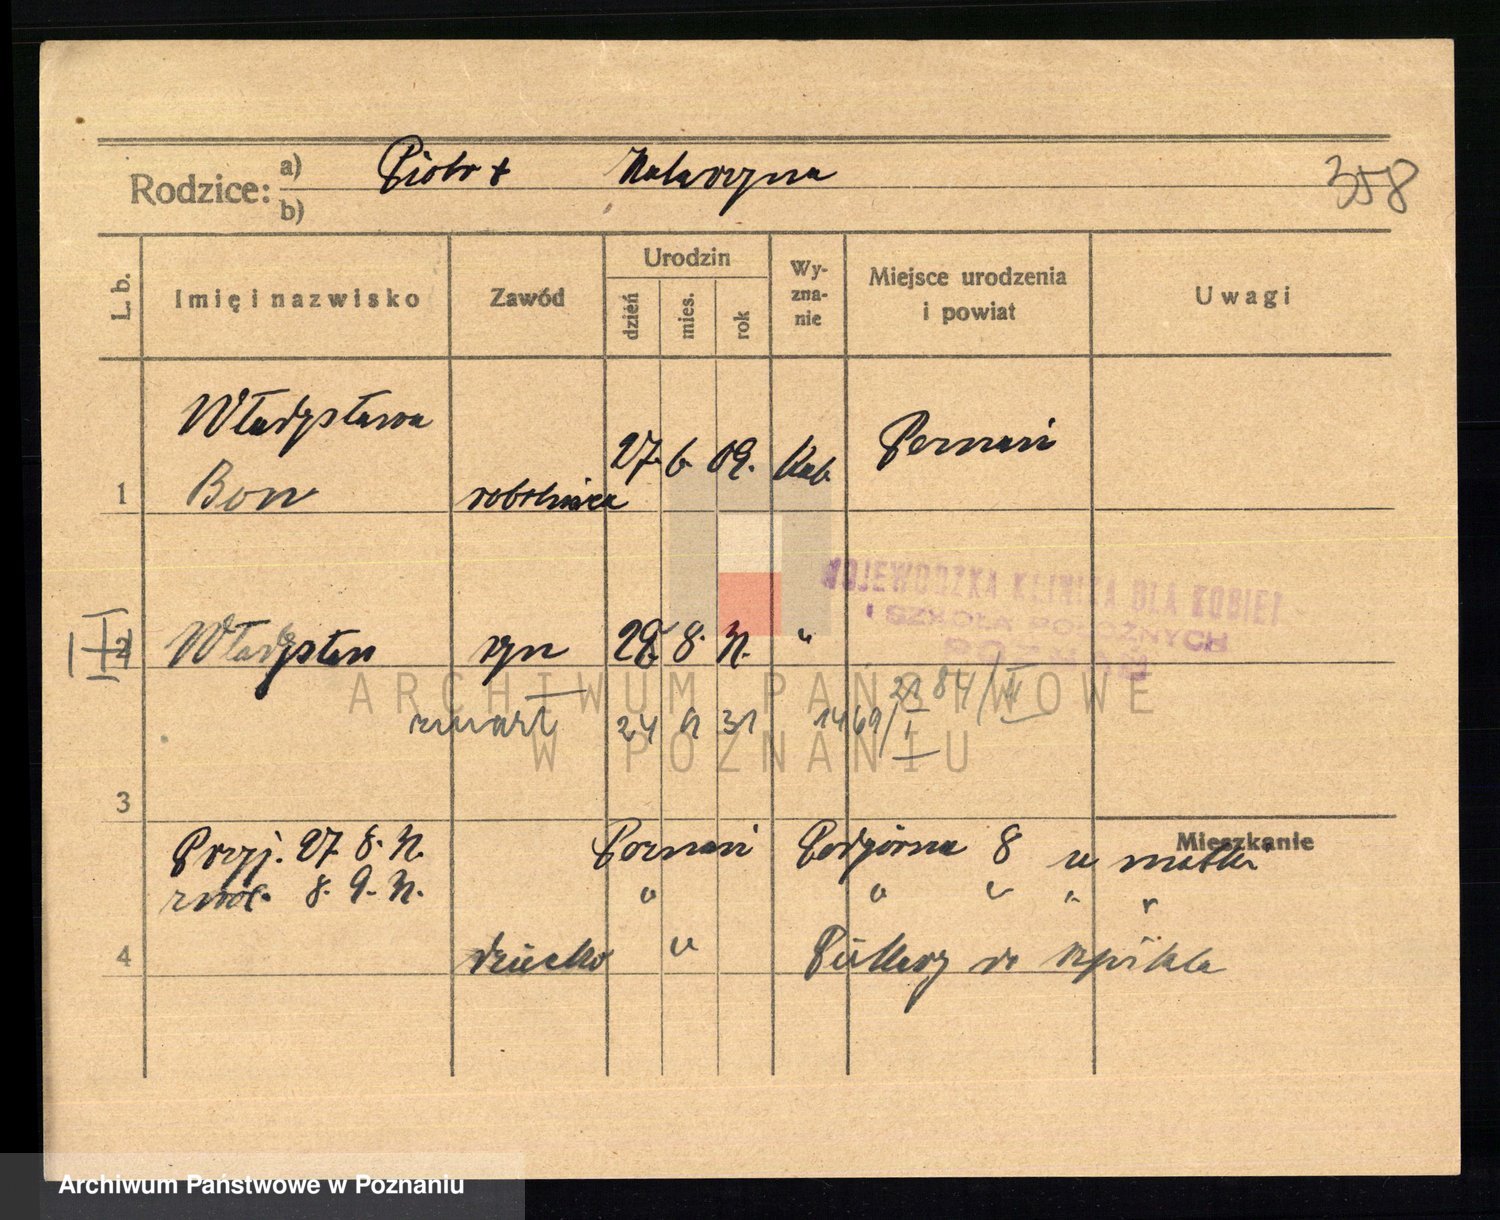 Rodzice: a) Piotr + Katarzyna
b)
358
L. b.
Imię i nazwisko
Zawód
Urodzin
dzień
mies.
rok
Wy-
zna-
nie
Miejsce urodzenia
i powiat
Uwagi
Władysława
Bon
1
robotnica
27. 6. 09. Kat. Poznań
WOJEWÓDZKA KLINIKA DLA KOBIET
I SZKOŁA POŁOŻNYCH
POZNAŃ
2 Władysław syn 29. 8. 31. "
2184/II
zmarł 24 9 31 1469/I
ARCHIWUM PAŃSTWOWE
W POZNANIU
3
Mieszkanie
Przyj. 27. 8. 31. Poznań Podgórna 8 u matki
8. 9. 31. " " " " "
4
dziecko " do szpitala
Archiwum Państwowe w Poznaniu